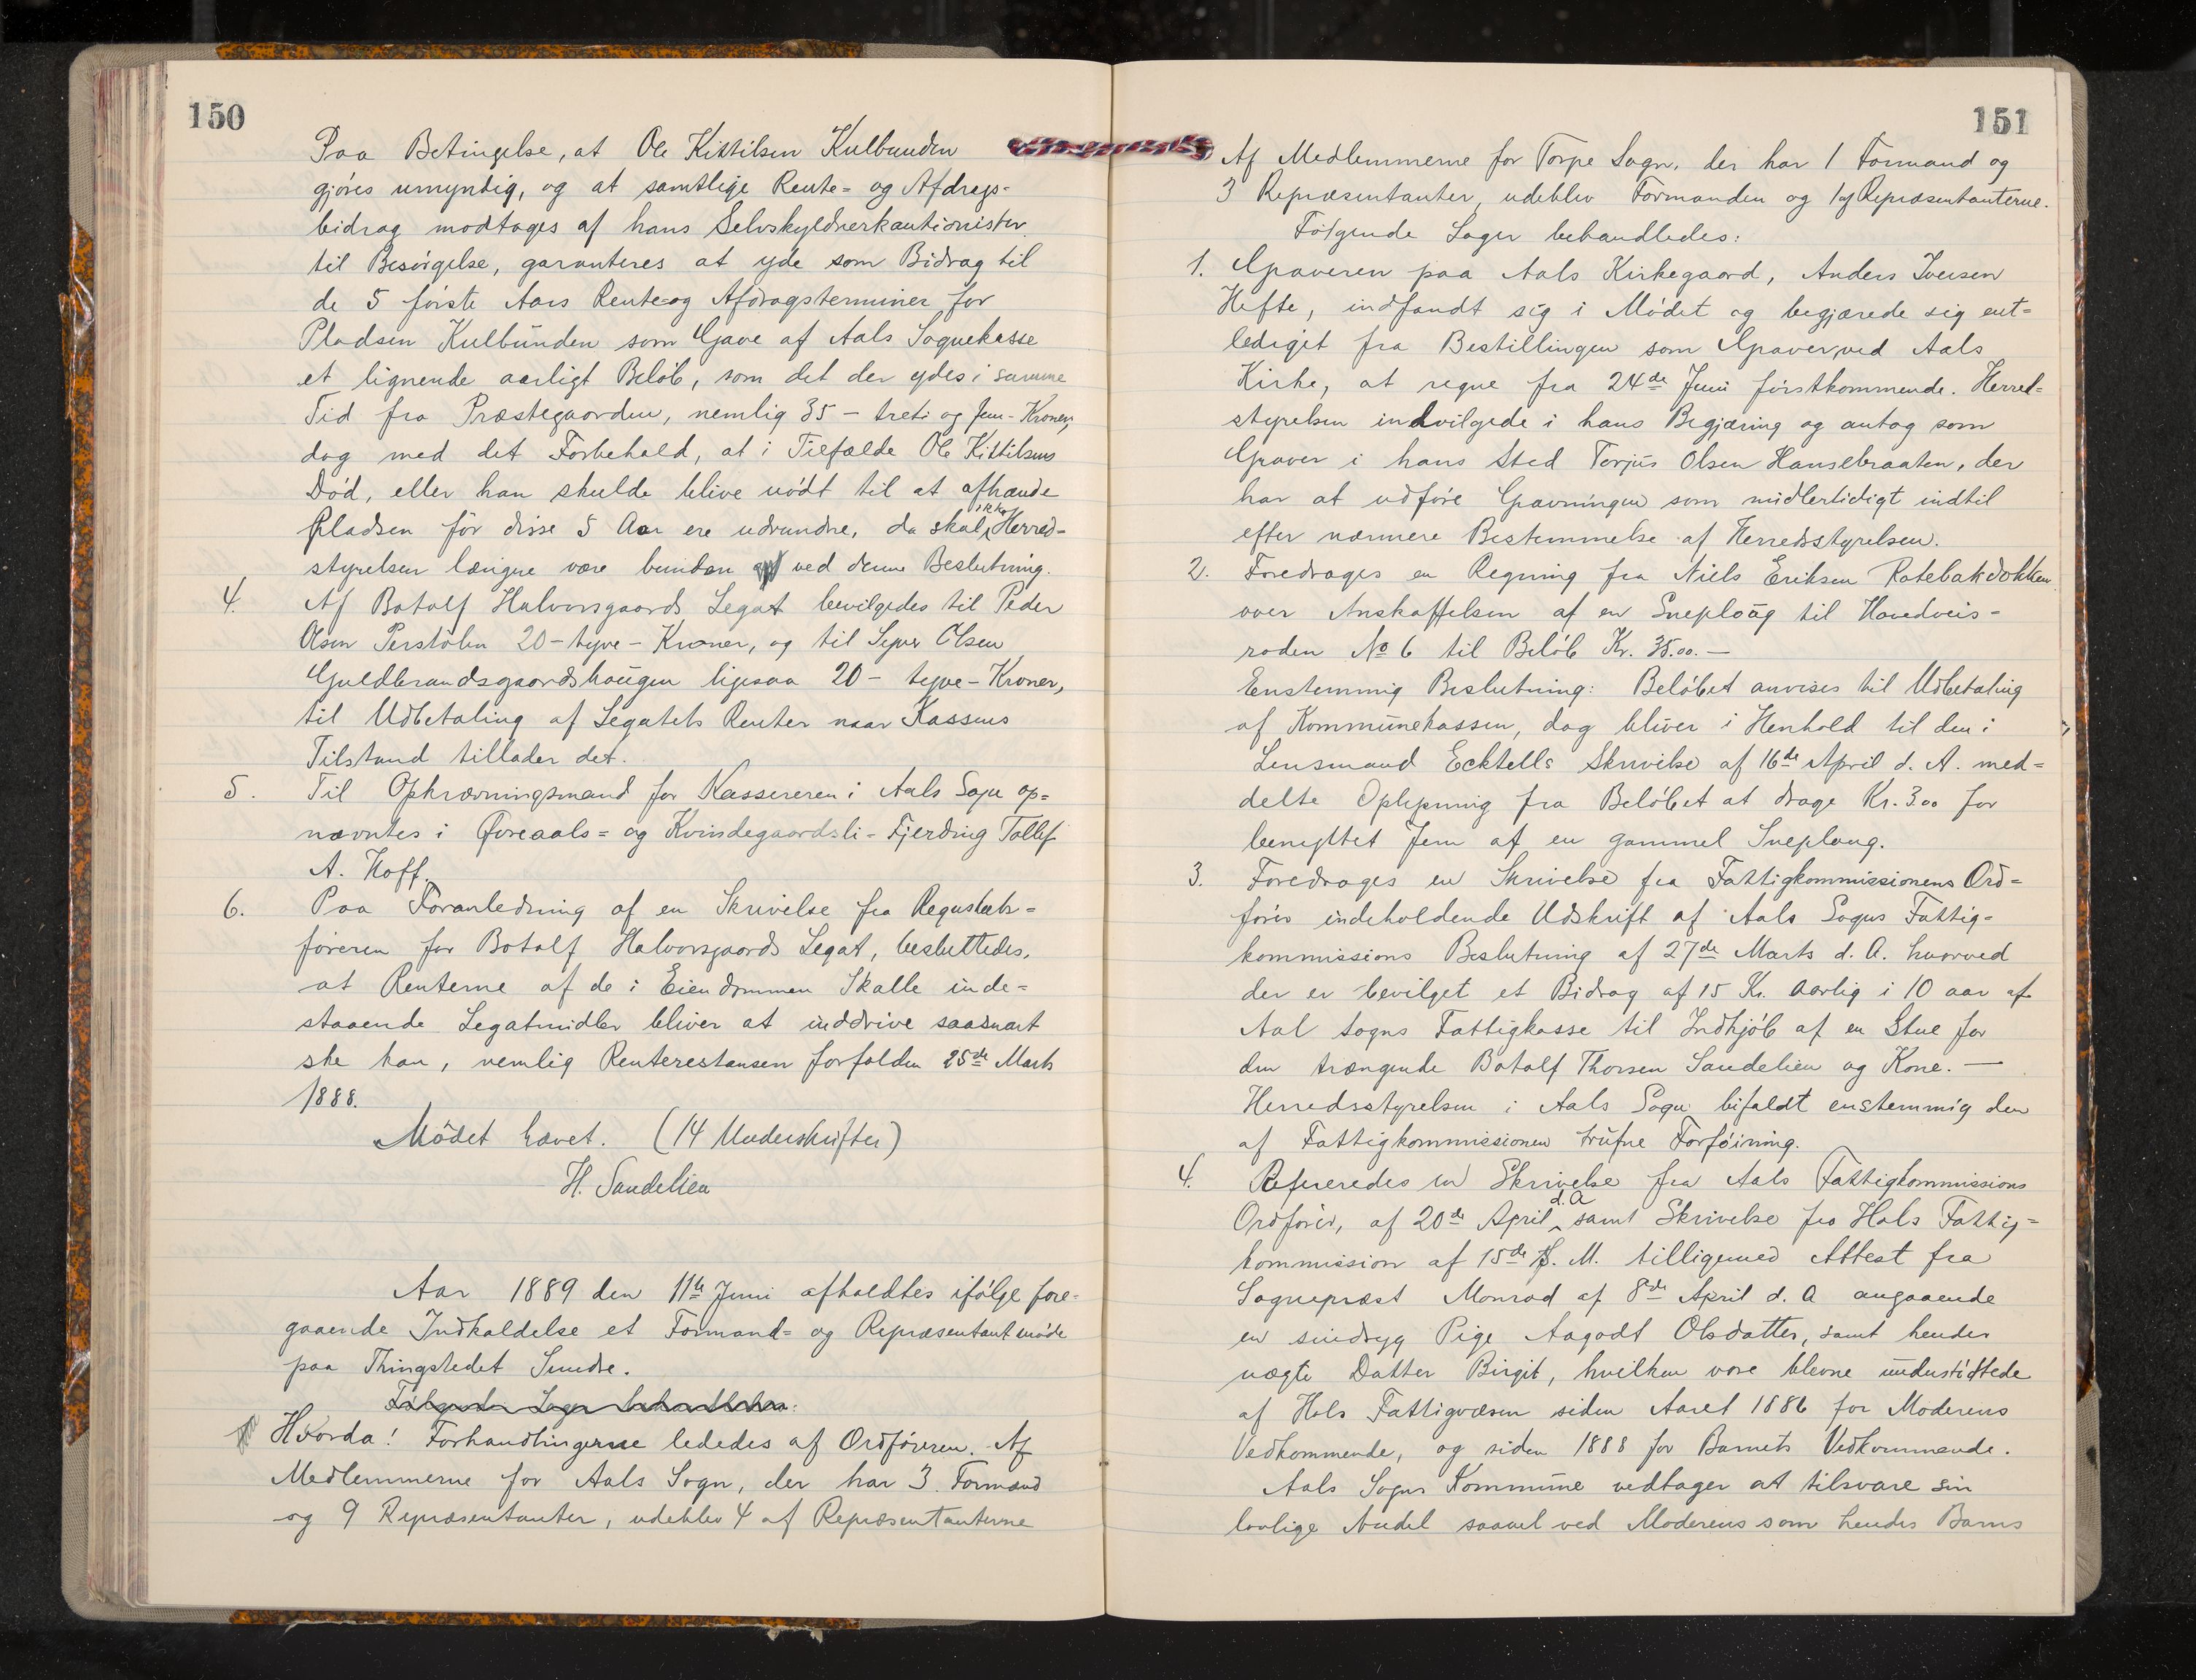 150
Paa Betingelse, at Ole Kittilsen Kulbunden
gjöres umyndig, og at samtlige Rente= og Afdrags-
bidrag modtages af hans Selvskyldnerkautionister
til Besörgelse, garanteres at yde som Bidrag til
de 5 förste Aars Rente og Afdragsterminer for
Pladsen Kulbunden som Gave af Aals Sognekasse
et lignende aarligt Belöb, som det der ydes i samme
Tid fra Præstegaarden, nemlig 35 - treti og fem - Kroner,
dog med det Forbehold, at i Tilfælde Ole Kittilsens
Död, eller han skulde blive nödt til at afhænde
Pladsen för disse 5 Aar ere udrundne, da skal ikke Herred-
styrelsen længre være bunden ved denne Beslutning.
4. Af Botolf Halvorsgaards Legat bevilgedes til Peder
Olsen Perstölen 20 - tyve - Kroner, og til Syver Olsen
Guldbrandsgaardshaugen ligesaa 20 - tyve - Kroner,
til Udbetaling af Legatets Renter naar Kassens
Tilstand tillader det.
5. Til Opkrævningsmand for Kassereren i Aals Sogn op=
nævntes i Övreaals= og Kvindegaardsli-Fjerding Tollef
A. Hoff.
6. Paa Foranledning af en Skrivelse fra Regnskabs=
föreren for Botolf Halvorsgaards Legat, besluttedes,
at Renterne af de i Eiendommen Skalle inde=
staaende Legatmidler bliver at inddrive saasnart
ske kan, nemlig Renterestansen forfalden 25de Marts
1888.
Mödet hævet. (14 Underskrifter)
H. Sundelien
Aar 1889 den 11te Juni afholdtes ifölge fore-
gaaende Indkaldelse et Formand= og Repræsentantmöde
paa Thingstedet Sundre.
Fölgende Sager behandledes:
Hvorda! Forhandlingerne lededes af Ordföreren. Af
Medlemmerne for Aals Sogn, der har 3 Formænd
og 9 Repræsentanter, udeblev 4 af Repræsentanterne
151
Af Medlemmerne for Torpe Sogn, der har 1 Formand og
3 Repræsentanter, udeblev Formanden og 1 af Repræsentanterne.
Fölgende Sager behandledes:
1. Graveren paa Aals Kirkegaard, Anders Iversen
Hefte, indfandt sig i Mödet og begjærede sig ent=
lediget fra Bestillingen som Graver ved Aals
Kirke, at regne fra 24de Juni förstkommende. Herred=
styrelsen indvilgede i hans Begjæring og antog som
Graver i hans Sted Torjus Olsen Hanselbraaten, der
har at udföre Gravningen som midlertidigt indtil
efter nærmere Bestemmelse af Herredsstyrelsen.
2. Foredrages en Regning fra Niels Eriksen Rotebakdokken
over Anskaffelsen af en Sneploug til Hovedveis-
roden No 6 til Belöb Kr. 35.00. —
Enstemmig Beslutning: Belöbet anvises til Udbetaling
af Kommunekassen, dog bliver i Henhold til den i
Lensmand Ecktells Skrivelse af 16de April d. A. med=
delte Oplysning fra Belöbet at drage Kr. 3.00 for
benyttet Jern af en gammel Sneploug.
3. Foredrages en Skrivelse fra Fattigkommissionens Ord=
förer indeholdende Udskrift af Aals Sogns Fattig=
kommissions Beslutning af 27de Marts d. A. hvorved
der er bevilget et Bidrag af 15 Kr. aarlig i 10 aar af
Aal Sogns Fattigkasse til Indkjöb af en Stue for
den trængende Botolf Thorsen Sundelien og Kone. —
Herredsstyrelsen i Aals Sogn bifaldt enstemmig den
af Fattigkommissionen trufne Forföining.
4. Refereredes en Skrivelse fra Aals Fattigkommissions
Ordförer, af 20de April d. A samt Skrivelse fra Hols Fattig=
kommission af 15de S. M. tilligemed Attest fra
Sognepræst Monrad af 8de April d. A angaaende
en sindssyg Pige Aagodt Olsdatter, samt hendes
uægte Datter Birgit, hvilken vare blevne understöttede
af Hols Fattigvæsen siden Aaret 1886 for Moderens
Vedkommende, og siden 1888 for Barnets Vedkommende.
Aals Sogns Kommune vedtager at tilsvare sin
lovlige Andel saavel ved Moderens som hendes Barns